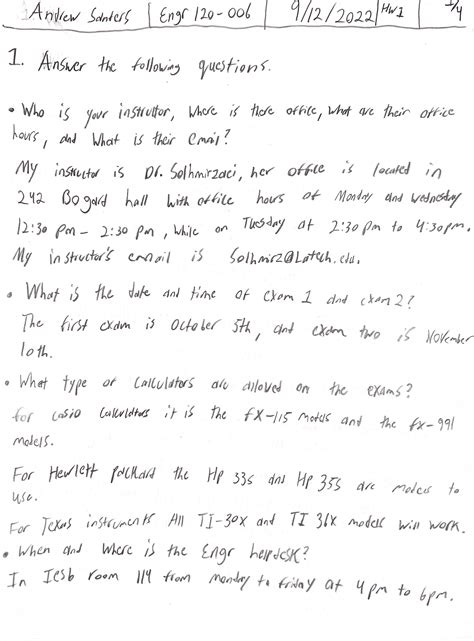 Andrew Sanders | Engr 120-006 | 9/12/2022 | HW1 | 1/4
1. Answer the following questions.
• Who is your instructor, where is there office, what are their office
hours, and what is their email?
My instructor is Dr. Solhmirzaei, her office is located in
242 Bogard hall with office hours of Monday and Wednesday
12:30 pm - 2:30 pm, while on Tuesday at 2:30 pm to 4:30 pm.
My instructor's email is Solhmirz@Latech.edu.
• What is the date and time of exam 1 and exam 2?
The first exam is October 5th, and exam two is November
10th.
• What type of calculators are allowed on the exams?
for casio calculators it is the fx-115 models and the fx-991
models.
For Hewlett packard the Hp 33s and Hp 35s are models to
use.
For Texas instruments All TI-30x and TI 36x models will work.
• When and where is the Engr helpdesk?
In Iesb room 114 from monday to friday at 4 pm to 6pm.